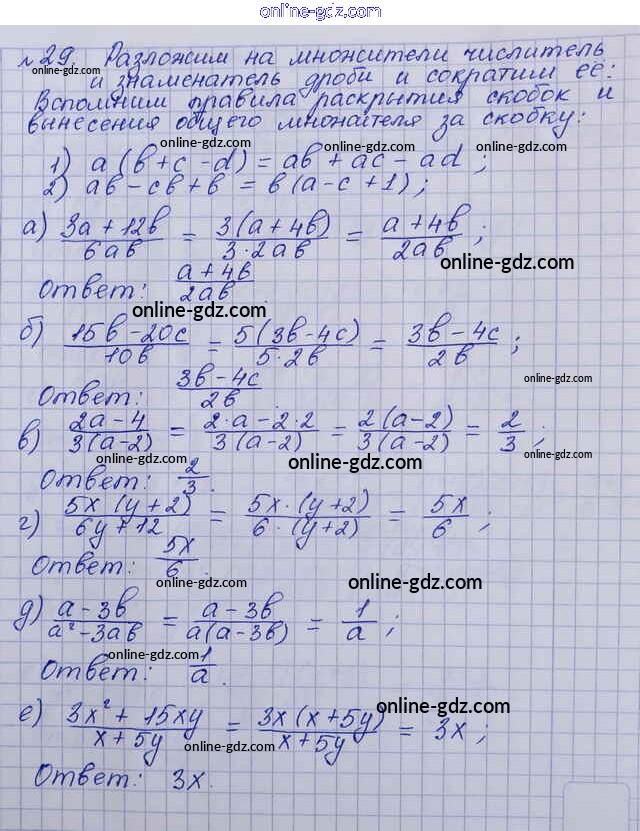 online-gdz.com
№29. Разложим на множители числитель
online-gdz.com
и знаменатель дроби и сократим её:
online-gdz.com
Вспомним правила раскрытия скобок и
вынесения общего множителя за скобку:
online-gdz.com
1) a(b+c-d) = ab + ac - ad;
2) ab - cb + b = b(a-c+1);
а) (3a + 12b)/(6ab) = (3(a+4b))/(3·2ab) = (a+4b)/(2ab);
online-gdz.com
Ответ: (a+4b)/(2ab).
online-gdz.com
б) (15b-20c)/(10b) = (5(3b-4c))/(5·2b) = (3b-4c)/(2b);
online-gdz.com
Ответ: (3b-4c)/(2b)
online-gdz.com
в) (2a-4)/(3(a-2)) = (2·a-2·2)/(3(a-2)) = (2(a-2))/(3(a-2)) = 2/3;
online-gdz.com online-gdz.com online-gdz.com
Ответ: 2/3.
г) (5x(y+2))/(6y+12) = (5x·(y+2))/(6·(y+2)) = 5x/6;
online-gdz.com
Ответ: 5x/6.
online-gdz.com online-gdz.com
д) (a-3b)/(a²-3ab) = (a-3b)/(a(a-3b)) = 1/a;
online-gdz.com
Ответ: 1/a.
online-gdz.com
е) (3x²+15xy)/(x+5y) = (3x(x+5y))/(x+5y) = 3x;
online-gdz.com
Ответ: 3x.